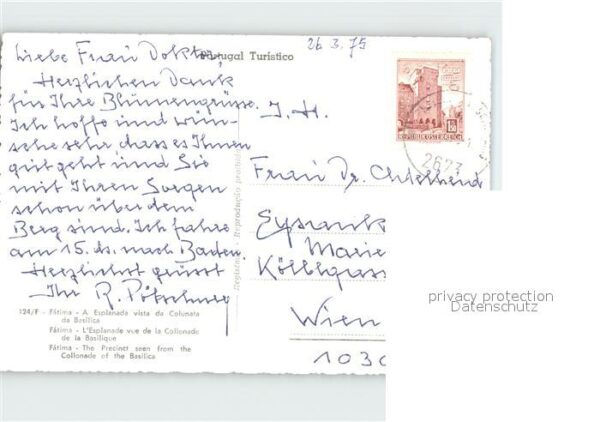 26.3.75
Portugal Turístico
Liebe Frau Doktor,
Herzlichen Dank
für Ihre Blumengrüsse.
Ich hoffe und wün-
sche sehr, dass es Ihnen
gut geht und Sie
mit Ihren Sorgen
schon über dem
Berg sind. Ich fahre
am 15. ds. nach Baden.
Herzlichst grüsst
Ihr R.
124/F - Fátima - A Esplanada vista da Colunata
da Basílica
Fátima - L'Esplanade vue de la Collonade
de la Basilique
Fátima - The Precinct seen from the
Collonade of the Basilica
REPUBLIK ÖSTERREICH
2673
I. H.
Frau Dr.
Marie
Wien
1030
privacy protection
Datenschutz